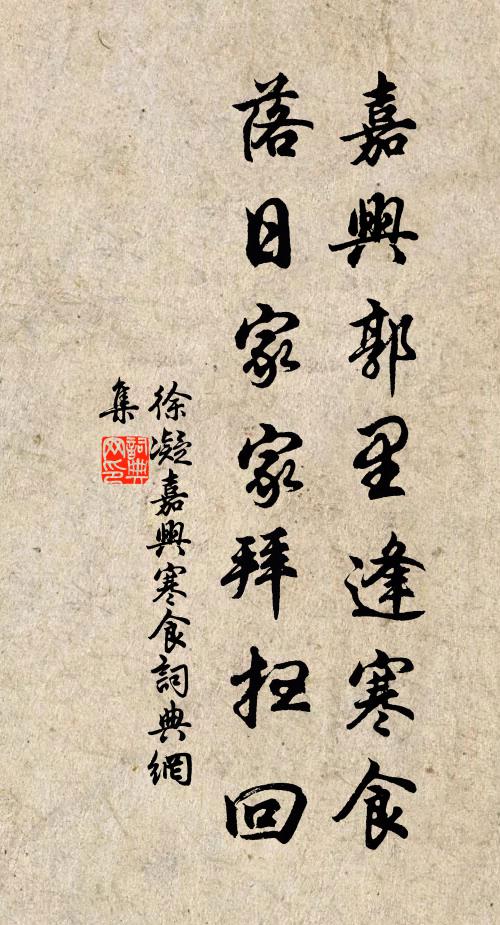 嘉興郭里逢寒食
落日家家拜扫回
徐凝嘉興寒食詞典網
集
詞典
网印